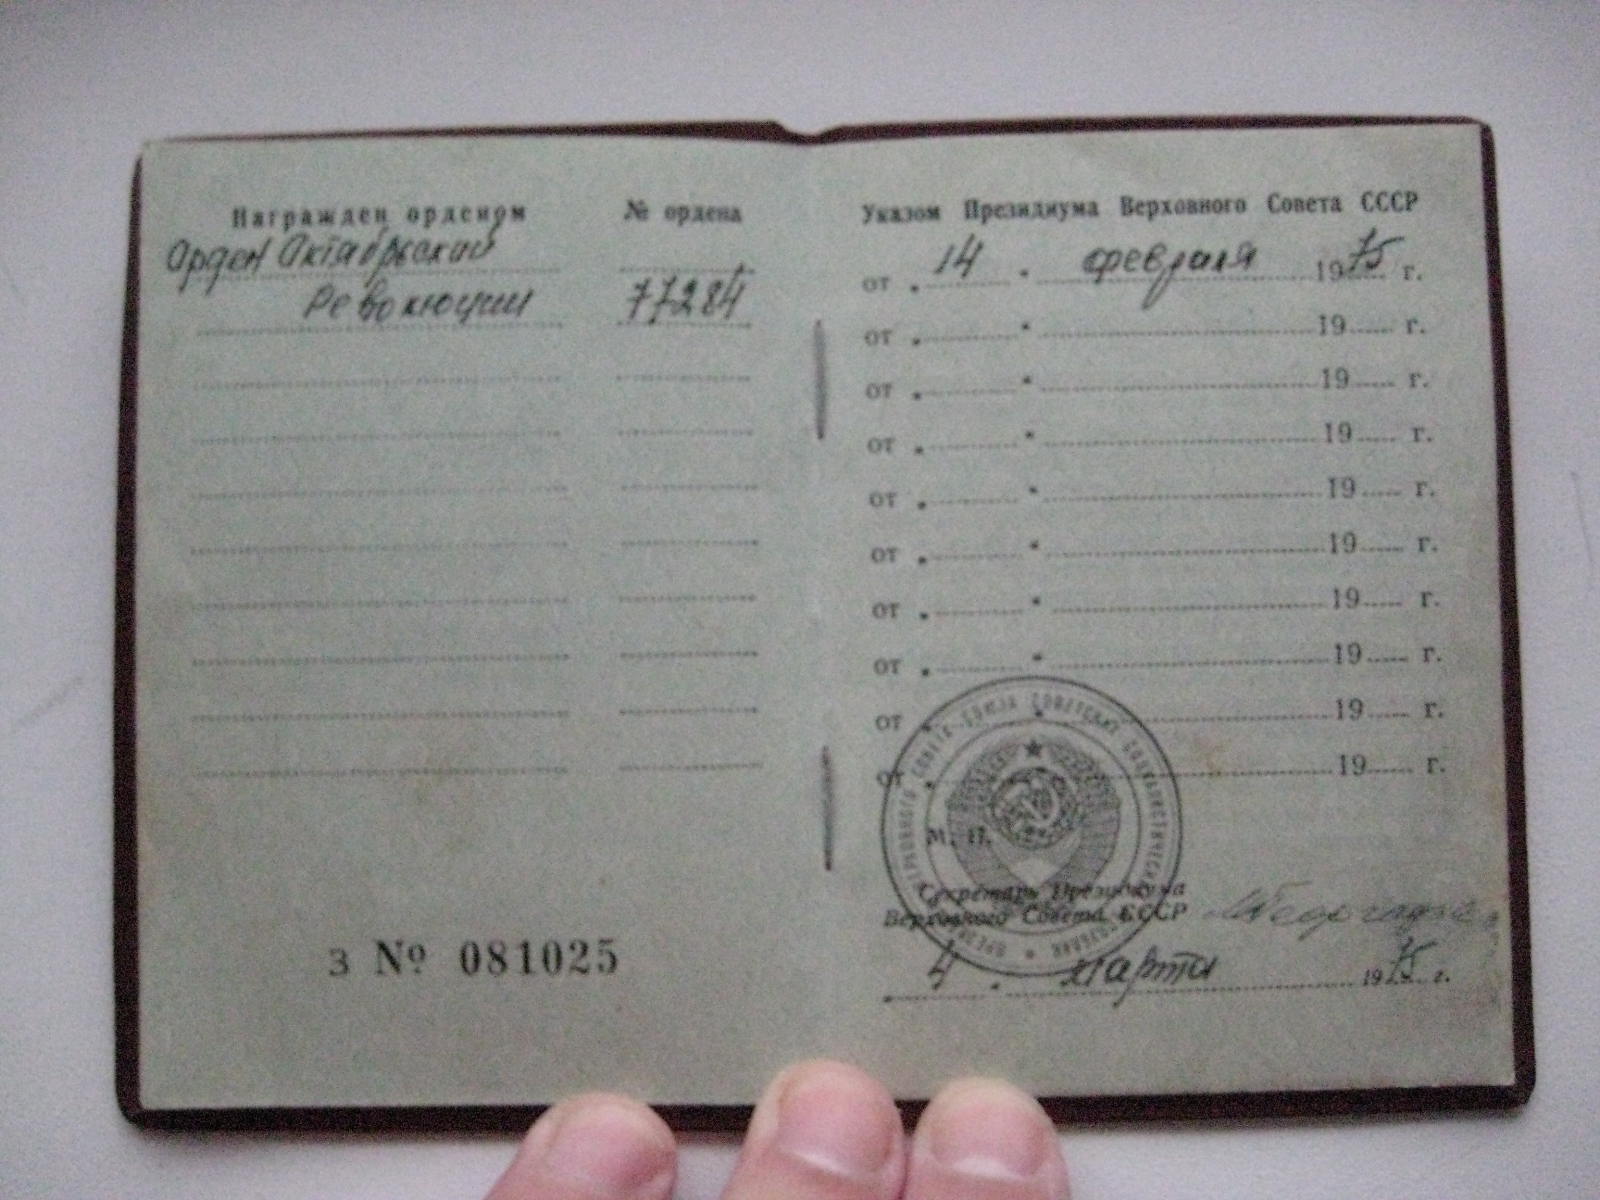 Награжден орденом № ордена
Орден Октябрьской
Революции 77284
З № 081025
Указом Президиума Верховного Совета СССР
от „ 14 “ февраля 1975 г.
от „ “ 19 г.
от „ “ 19 г.
от „ “ 19 г.
от „ “ 19 г.
от „ “ 19 г.
от „ “ 19 г.
от „ “ 19 г.
от „ “ 19 г.
от „ “ 19 г.
М. П.
Секретарь Президиума
Верховного Совета СССР
„ 4 “ марта 1975 г.
ПРЕЗИДИУМ ВЕРХОВНОГО СОВЕТА СОЮЗА СОВЕТСКИХ СОЦИАЛИСТИЧЕСКИХ РЕСПУБЛИК